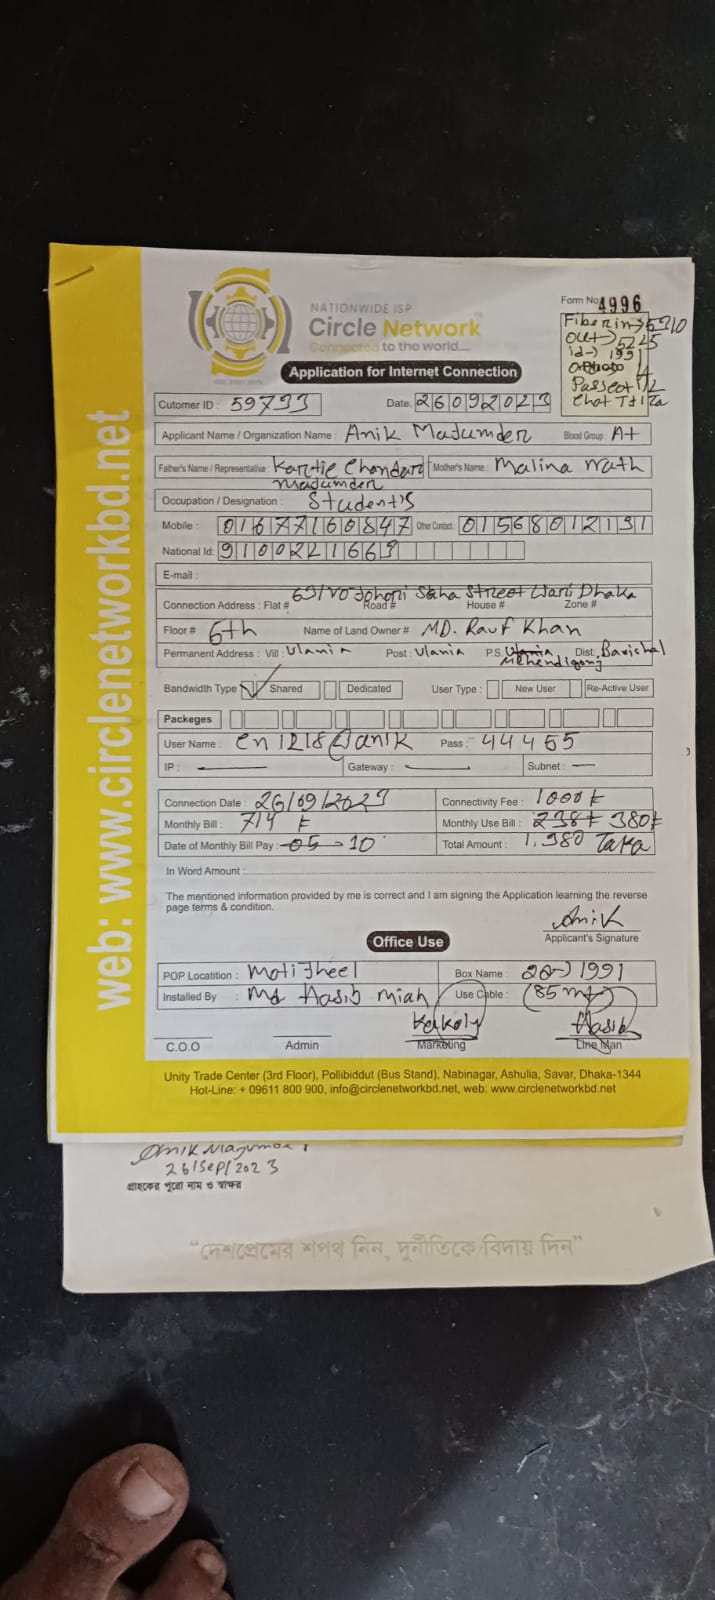 web: www.circlenetworkbd.net
NATIONWIDE ISP
Circle Network
Connected to the world....
Application for Internet Connection
Form No 4996
Fiber in → 5310
Out → 5225
id → 1991
Cutomer ID : 59793
Date: 26092023
Applicant Name / Organization Name : Anik Majumder Blood Group : A+
Father's Name / Representative : Kartic Chandar Majumder Mother's Name : Malina Nath
Occupation / Designation : Student's
Mobile : 01677160847 Other Contact: 01568012131
National Id: 9100241669
E-mail :
Connection Address : Flat # Road # House # Zone #
Saha Street Wari Dhaka
Floor # 6th Name of Land Owner # MD. Rauf Khan
Permanent Address : Vill : Ulania Post : Ulania P.S. Mehendigonj Dist: Barishal
Bandwidth Type Shared Dedicated User Type : New User Re-Active User
Packeges
User Name : anik Pass : 44455
IP : Gateway : Subnet :
Connection Date : 26/09/2023 Connectivity Fee : 1000 ৳
Monthly Bill : 714 ৳ Monthly Use Bill : 238৳ 380৳
Date of Monthly Bill Pay : 05 - 10 Total Amount : 1,380 Taka
In Word Amount :
The mentioned information provided by me is correct and I am signing the Application learning the reverse
page terms & condition.
Anik
Applicant's Signature
Office Use
POP Locatition : Motijheel Box Name : 1991
Installed By : Md Hasib Miah Use Cable : (85 mt)
Kakoly Hasib
C.O.O Admin Marketing Line Man
Unity Trade Center (3rd Floor), Pollibiddut (Bus Stand), Nabinagar, Ashulia, Savar, Dhaka-1344
Hot-Line: + 09611 800 900, info@circlenetworkbd.net, web: www.circlenetworkbd.net
Anik Majumder
26/Sep/2023
গ্রাহকের পুরো নাম ও স্বাক্ষর
“দেশপ্রেমের শপথ নিন, দুর্নীতিকে বিদায় দিন”